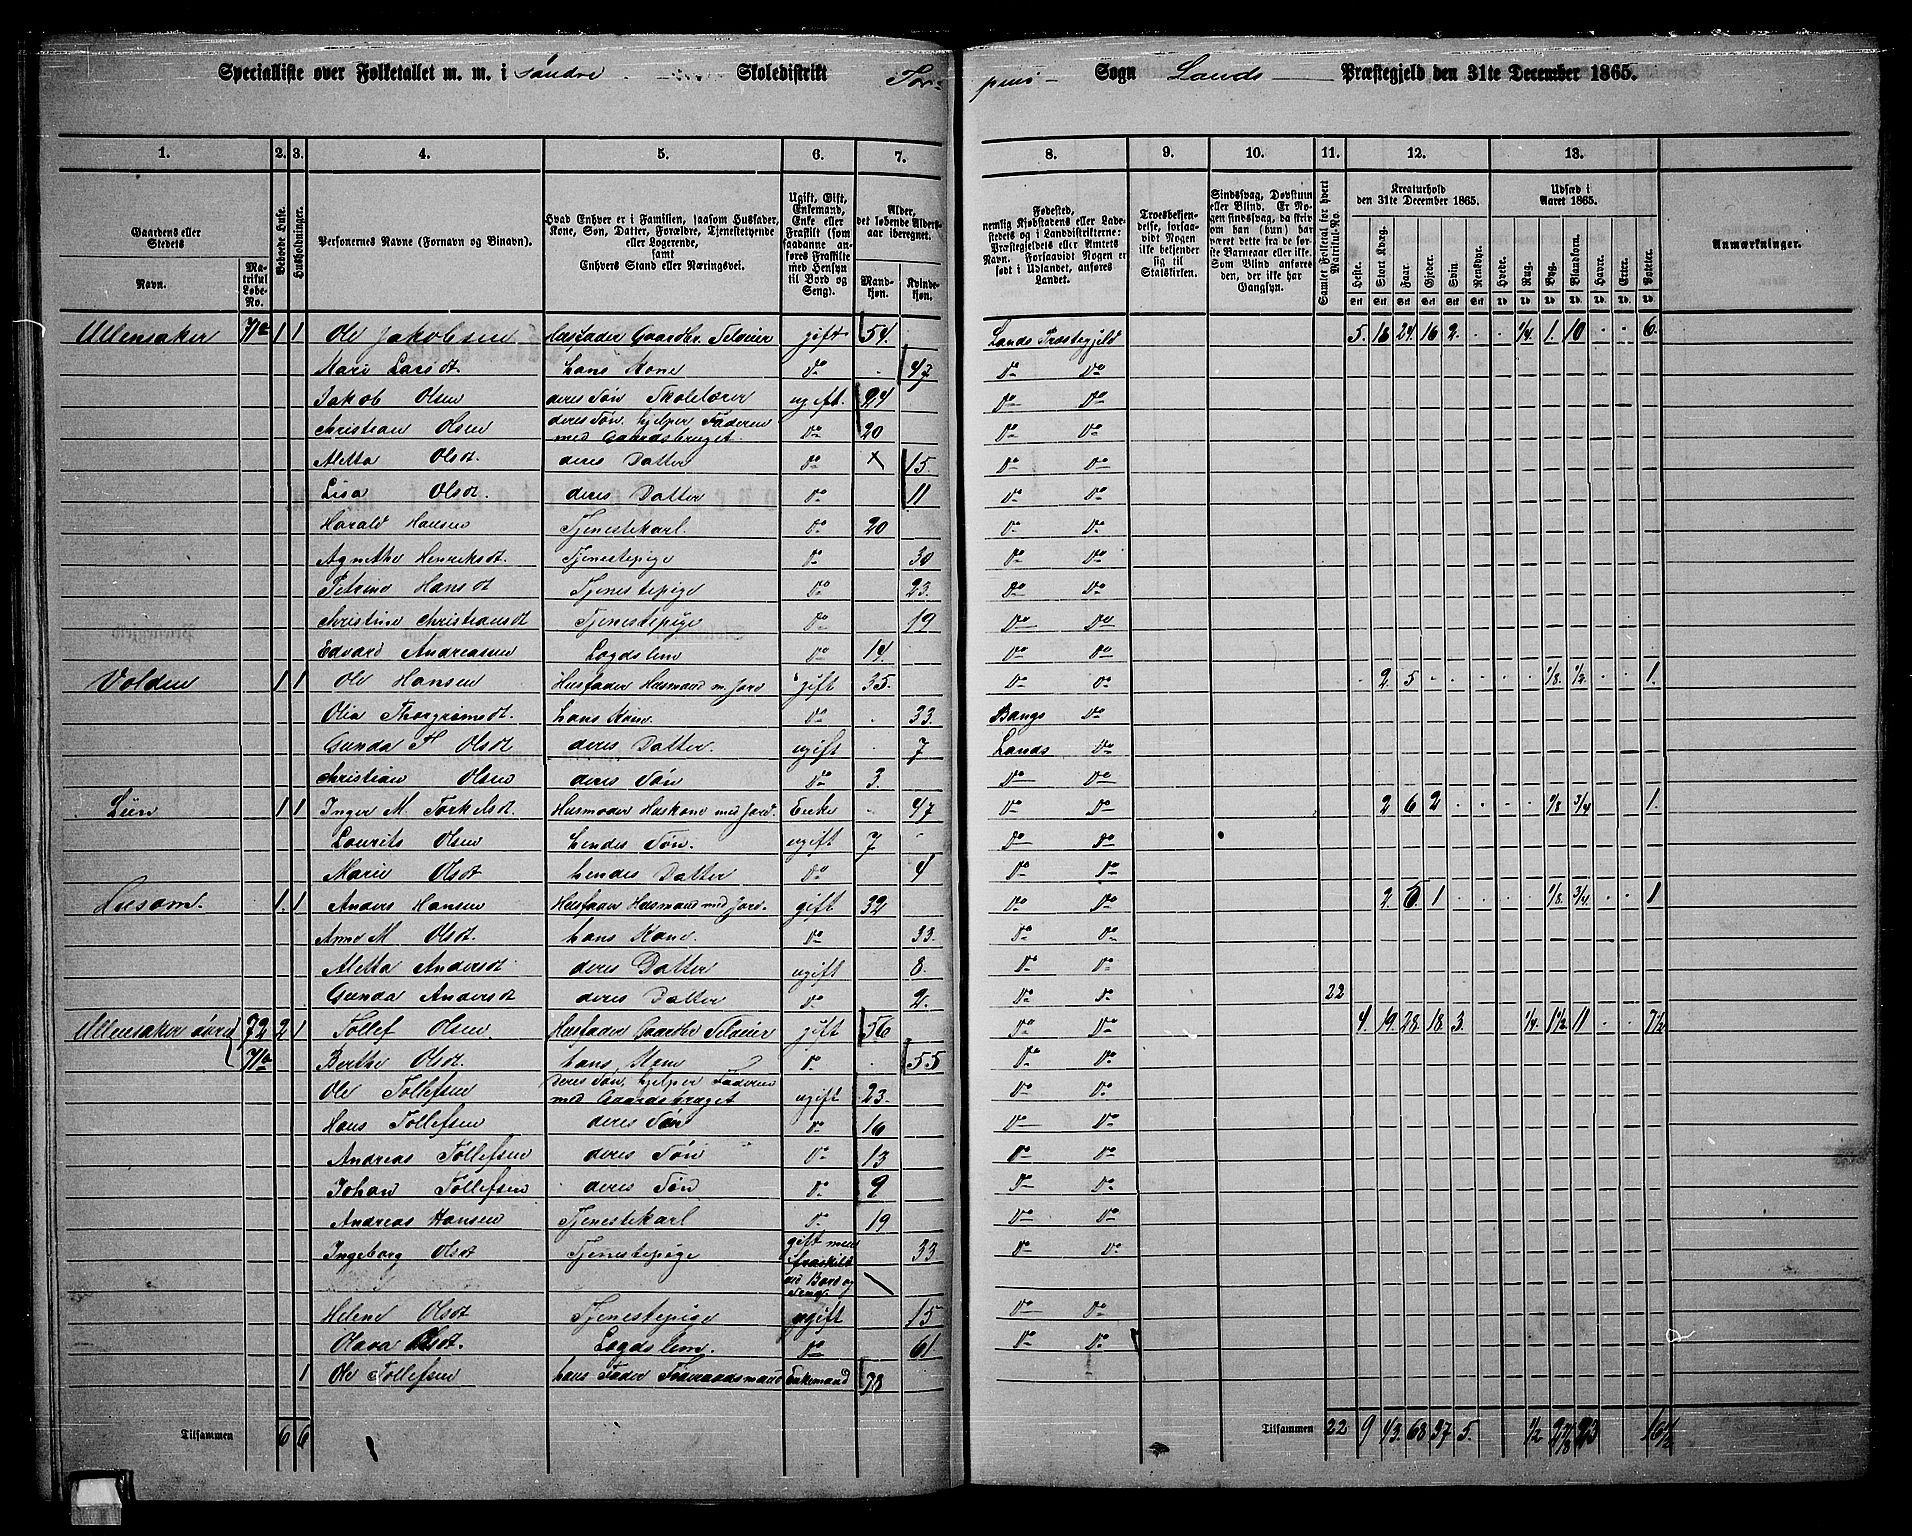 Specialliste over Folketallet m. m. i Søndre Skoledistrikt Tor-
pens Sogn Lands Præstegjeld den 31te December 1865.
1. 2. 3. 4. 5. 6. 7. 8. 9. 10. 11. 12. 13.
Gaardens eller Stedets
Navn. Matrikul Løbe-No.
Beboede Huse.
Husholdninger.
Personernes Navne (Fornavn og Binavn).
Hvad Enhver er i Familien, saasom Husfader, Kone, Søn, Datter, Forældre, Tjenestetyende eller Logerende, samt Enhvers Stand eller Næringsvei.
Ugift, Gift, Enkemand, Enke eller Fraskilt (som saadanne anføres Fraskilte med Hensyn til Bord og Seng).
Alder, det løbende Aldersaar iberegnet.
Mandkjøn. Kvindekjøn.
Fødested, nemlig Kjøbstadens eller Ladestedets og i Landdistrikterne: Præstegjeldets eller Amtets Navn. Forsaavidt Nogen er født i Udlandet, anføres Landet.
Troesbekjendelse, forsaavidt Nogen ikke bekjender sig til Statskirken.
Sindssvag, Døvstum eller Blind. Er Nogen sindssvag, da skrives om han (hun) har været dette fra de første Barneaar eller ikke. Som Blind anføres den, der ikke har Gangsyn.
Samlet Folketal for hvert Matrikul-No.
Kreaturhold den 31te December 1865.
Heste. Stort Kvæg. Faar. Gjeder. Svin. Rensdyr.
Udsæd i Aaret 1865.
Hvede. Rug. Byg. Blandkorn. Havre. Erter. Poteter.
Anmærkninger.
Ullensaker 71a 1 1 Ole Jakobsen Husfader Gaardbr. Selveier gift 54. Lands Præstegjeld 5. 16 24. 16 2. 1/4 1. 10 6.
Mari Larsdt. hans Kone Do 47 Do Do
Jakob Olsen deres Søn Skolelærer ugift. 24 Do Do
Christian Olsen deres Søn, hjelper Faderen med Gaardsbruget. Do 20 Do Do
Aletta Olsdt deres Datter Do 15. Do Do
Lisa Olsdt. deres Datter Do 11 Do Do
Harald Hansen Tjenestekarl. Do 20 Do Do
Agnethe Henriksdt. Tjenestepige Do 30 Do Do
Petrine Hansdt Tjenestepige Do 23. Do Do
Christine Christiansdt Tjenestepige Do 19 Do Do
Edvard Andreasen Logdslem Do 14. Do Do
Volden 1 1 Ole Hansen Husfader Husmand m. Jord gift 35. Do Do 2. 5 1/8. 1/2. 1.
Olia Thorgrimsdt. hans Kone. Do 33. Bangs Do
Gunda M Olsdt deres Datter. ugift 7 Lands Do
Christian Olsen deres Søn Do 3. Do Do
Liin 1 1 Inger M. Torkelsdt. Husmoder Huskone med Jord. Enke 47 Do Do 2 6 2 1/8 3/4 1.
Lourits Olsen hendes Søn. ugift 7 Do Do
Marie Olsdt hendes Datter Do 4 Do Do
Husom. 1. 1 Anders Hansen Husfader Husmand med Jord. gift 32 Do Do 2. 5. 1 1/8. 3/4. 1
Anne M Olsdt. hans Kone. Do 33. Do Do
Aletta Andersdt deres Datter ugift 8. Do Do
Gunda Andersdt deres Datter Do 2. Do Do 22
Ullensaker søndre 72 2 1 Tollef Olsen Husfader Gaardbr Selveier gift 56 Do Do 4. 19. 28. 18. 3. 1/4. 1 1/2 11 7 1/2
71b Berthe Olsdt. hans Kone Do 55 Do Do
Ole Tollefsen Deres Søn, hjelper Faderen med Gaardsbruget ugift 23. Do Do
Hans Tollefsen deres Søn Do 16 Do Do
Andreas Tollefsen deres Søn Do 13 Do Do
Johan Tollefsen deres Søn Do 9 Do Do
Andreas Hansen Tjenestekarl Do 19 Do Do
Ingeborg Olsdt Tjenestepige gift men fraskilt ved Bord og Seng 33. Do Do
Helene Olsdt Tjenestepige ugift 15 Do Do
Olava Olsdt. Logdslem. Do 61 Do Do
1 Ole Tollefsen hans Fader Føderaadsmand Enkemand 78
Tilsammen 6 6 Tilsammen 22 9 43. 68 37 5. 1/2 2 7/8 23